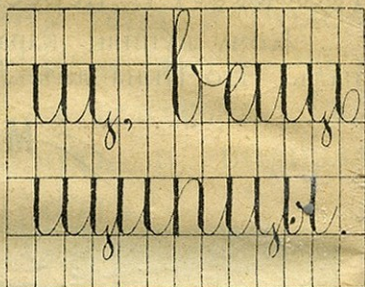 щ, вещь
щипцы.